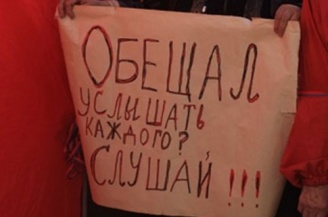 ОБЕЩАЛ
УСЛЫШАТЬ
КАЖДОГО?
СЛУШАЙ!!!